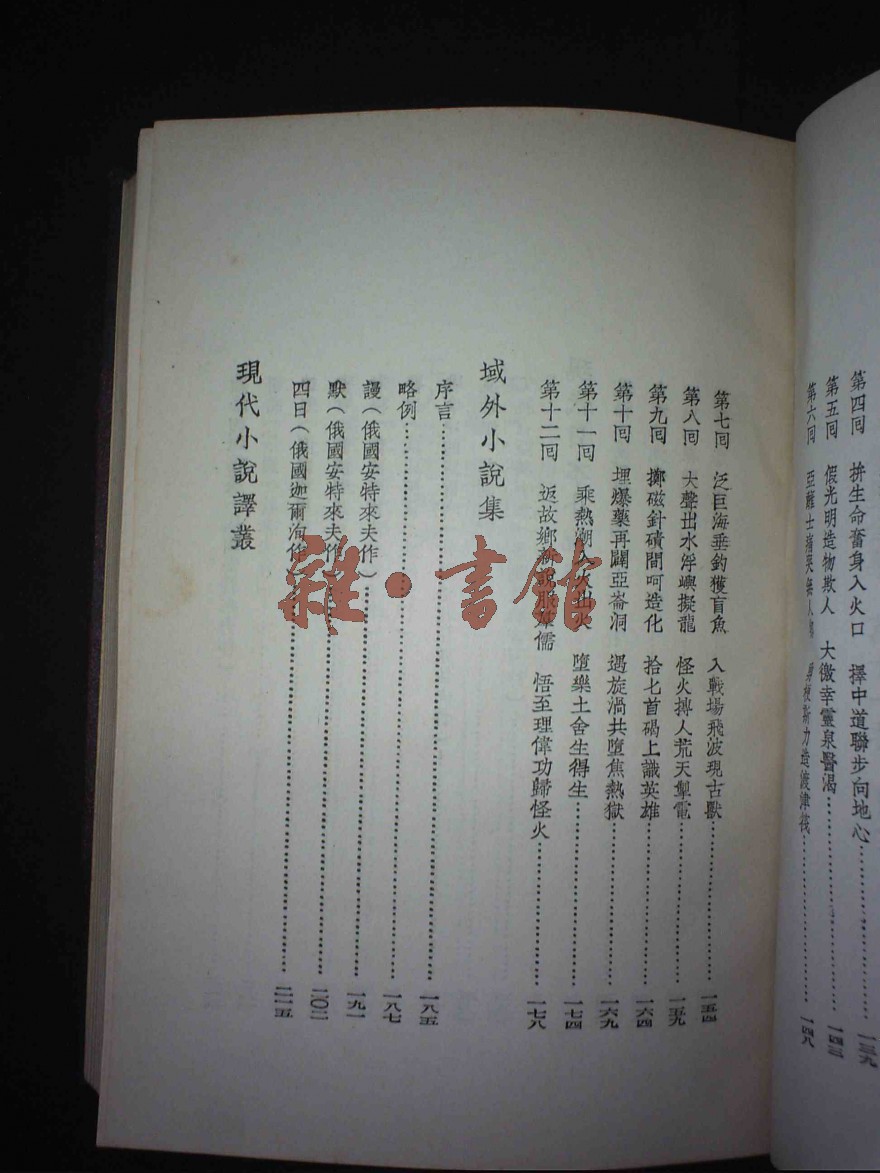 第四回　拚生命奮身入火口　擇中道聯步向地心………一三九
第五回　假光明造物欺人　大徼幸靈泉醫渴………一四三
第六回　亞離士痛哭無人鄉　勇梗斯力造渡津筏………一四八
第七回　泛巨海垂釣獲盲魚　入戰場飛波現古獸………一五四
第八回　大聲出水浮嶼擬龍　怪火摶人荒天掣電………一五九
第九回　擲磁針磧間呵造化　拾匕首碣上識英雄………一六四
第十回　埋爆藥再闢亞崙洞　遇旋渦共墮焦熱獄………一六九
第十一回　乘熱潮入火出火　墮樂土舍生得生………一七四
第十二回　返故鄉新說服羣儒　悟至理偉功歸怪火………一七八
域外小說集
序言………一八五
略例………一八七
謾（俄國安特來夫作）………一九一
默（俄國安特來夫作）………二〇二
四日（俄國迦爾洵作）………二一五
現代小說譯叢
雜·書館